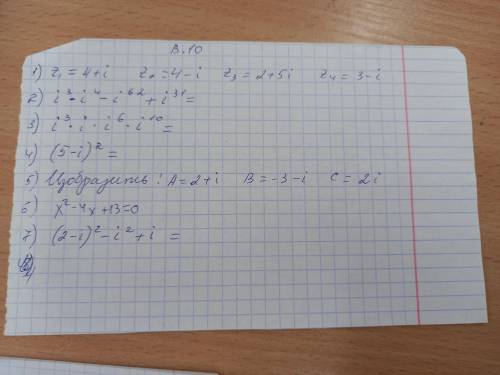 В.10
1) z₁ = 4+i z₂ = 4-i z₃ = 2+5i z₄ = 3-i
2) i³ · i⁴ - i⁶² + i³¹ =
3) i³ · i · i⁶ · i¹⁰ =
4) (5-i)² =
5) Изобразить: A = 2+i B = -3-i C = 2i
6) x² - 4x + 13 = 0
7) (2-i)² - i² + i =